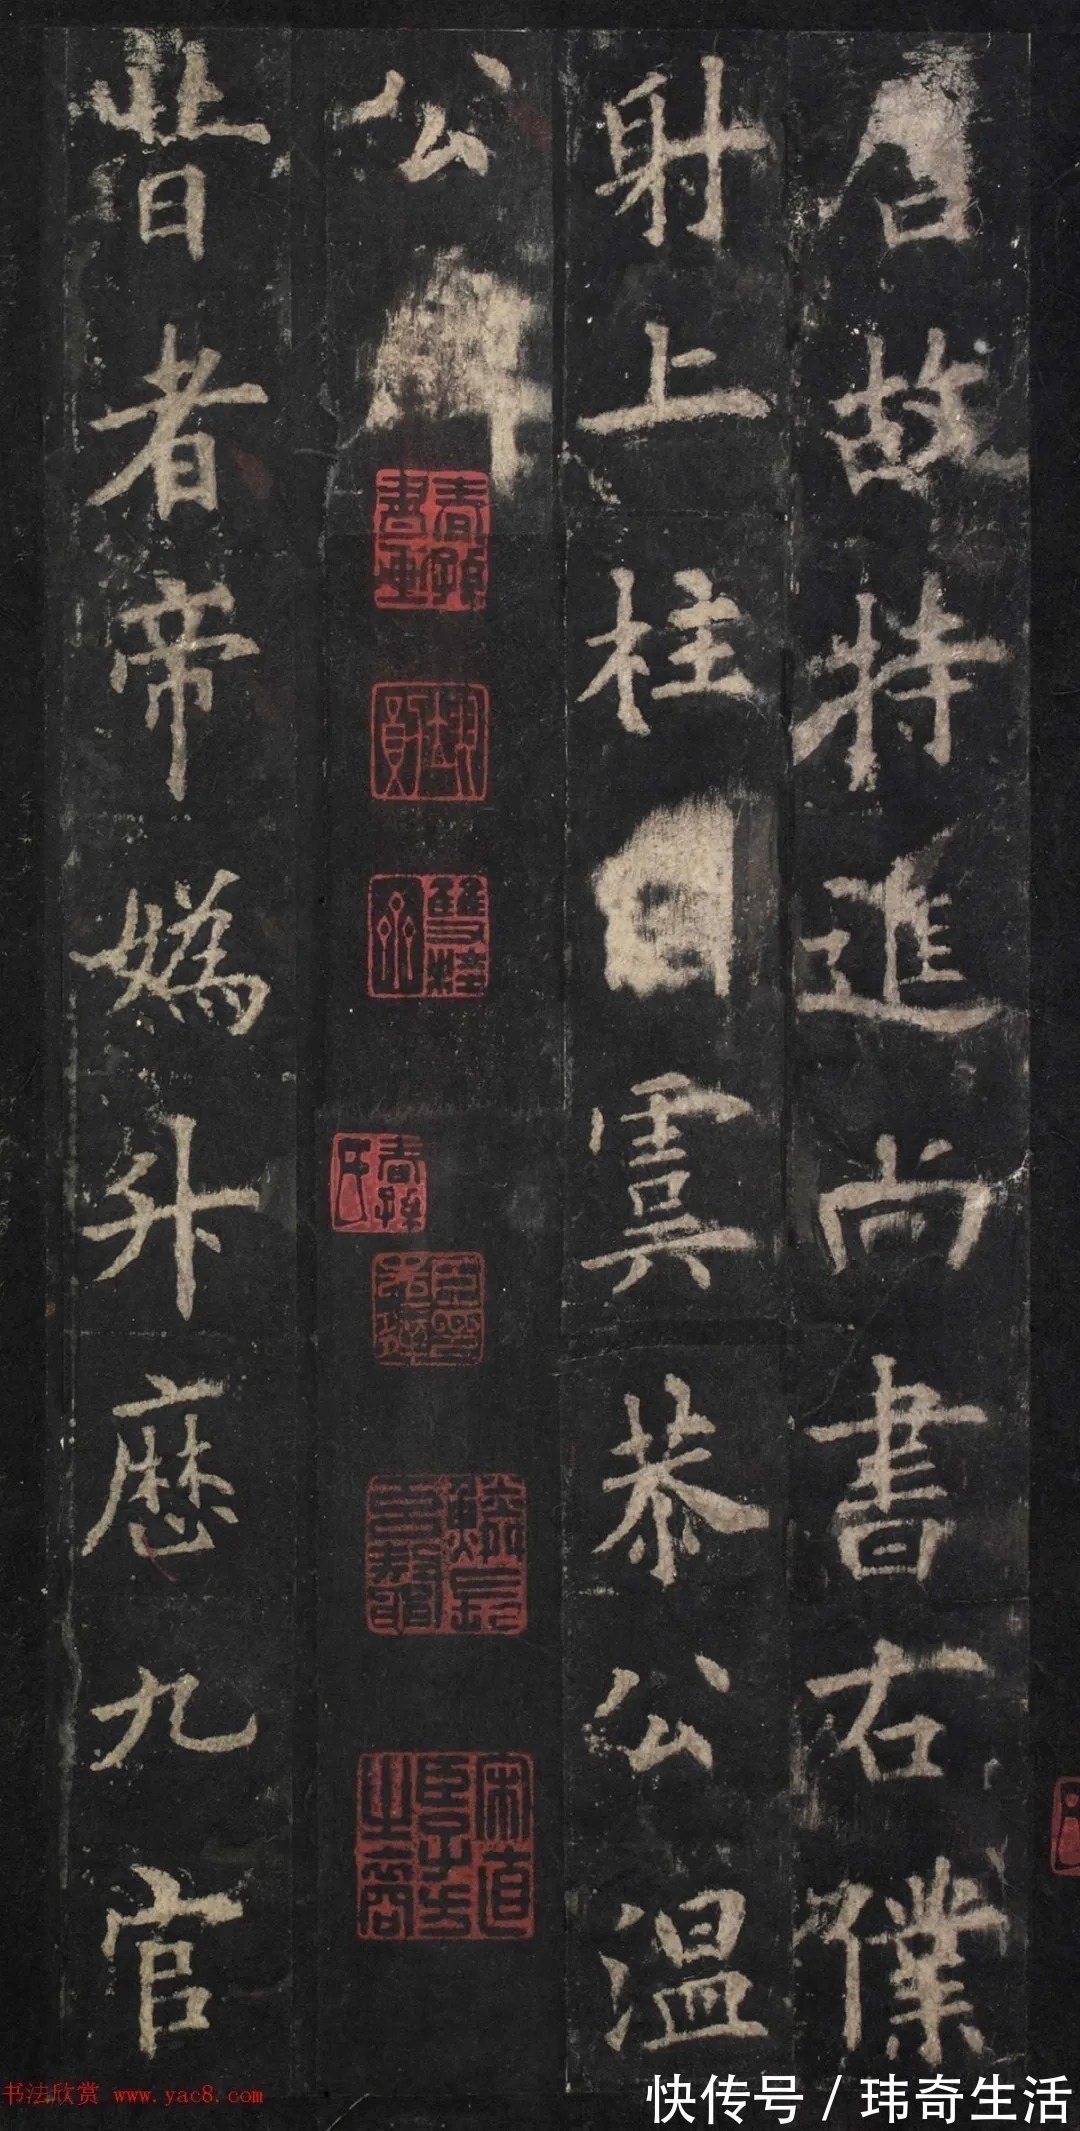 唐故特進尚書右僕
射上柱國虞恭公溫
公碑
昔者帝媯升歷九官
书法欣赏 www.yac8.com
快传号 / 玮奇生活